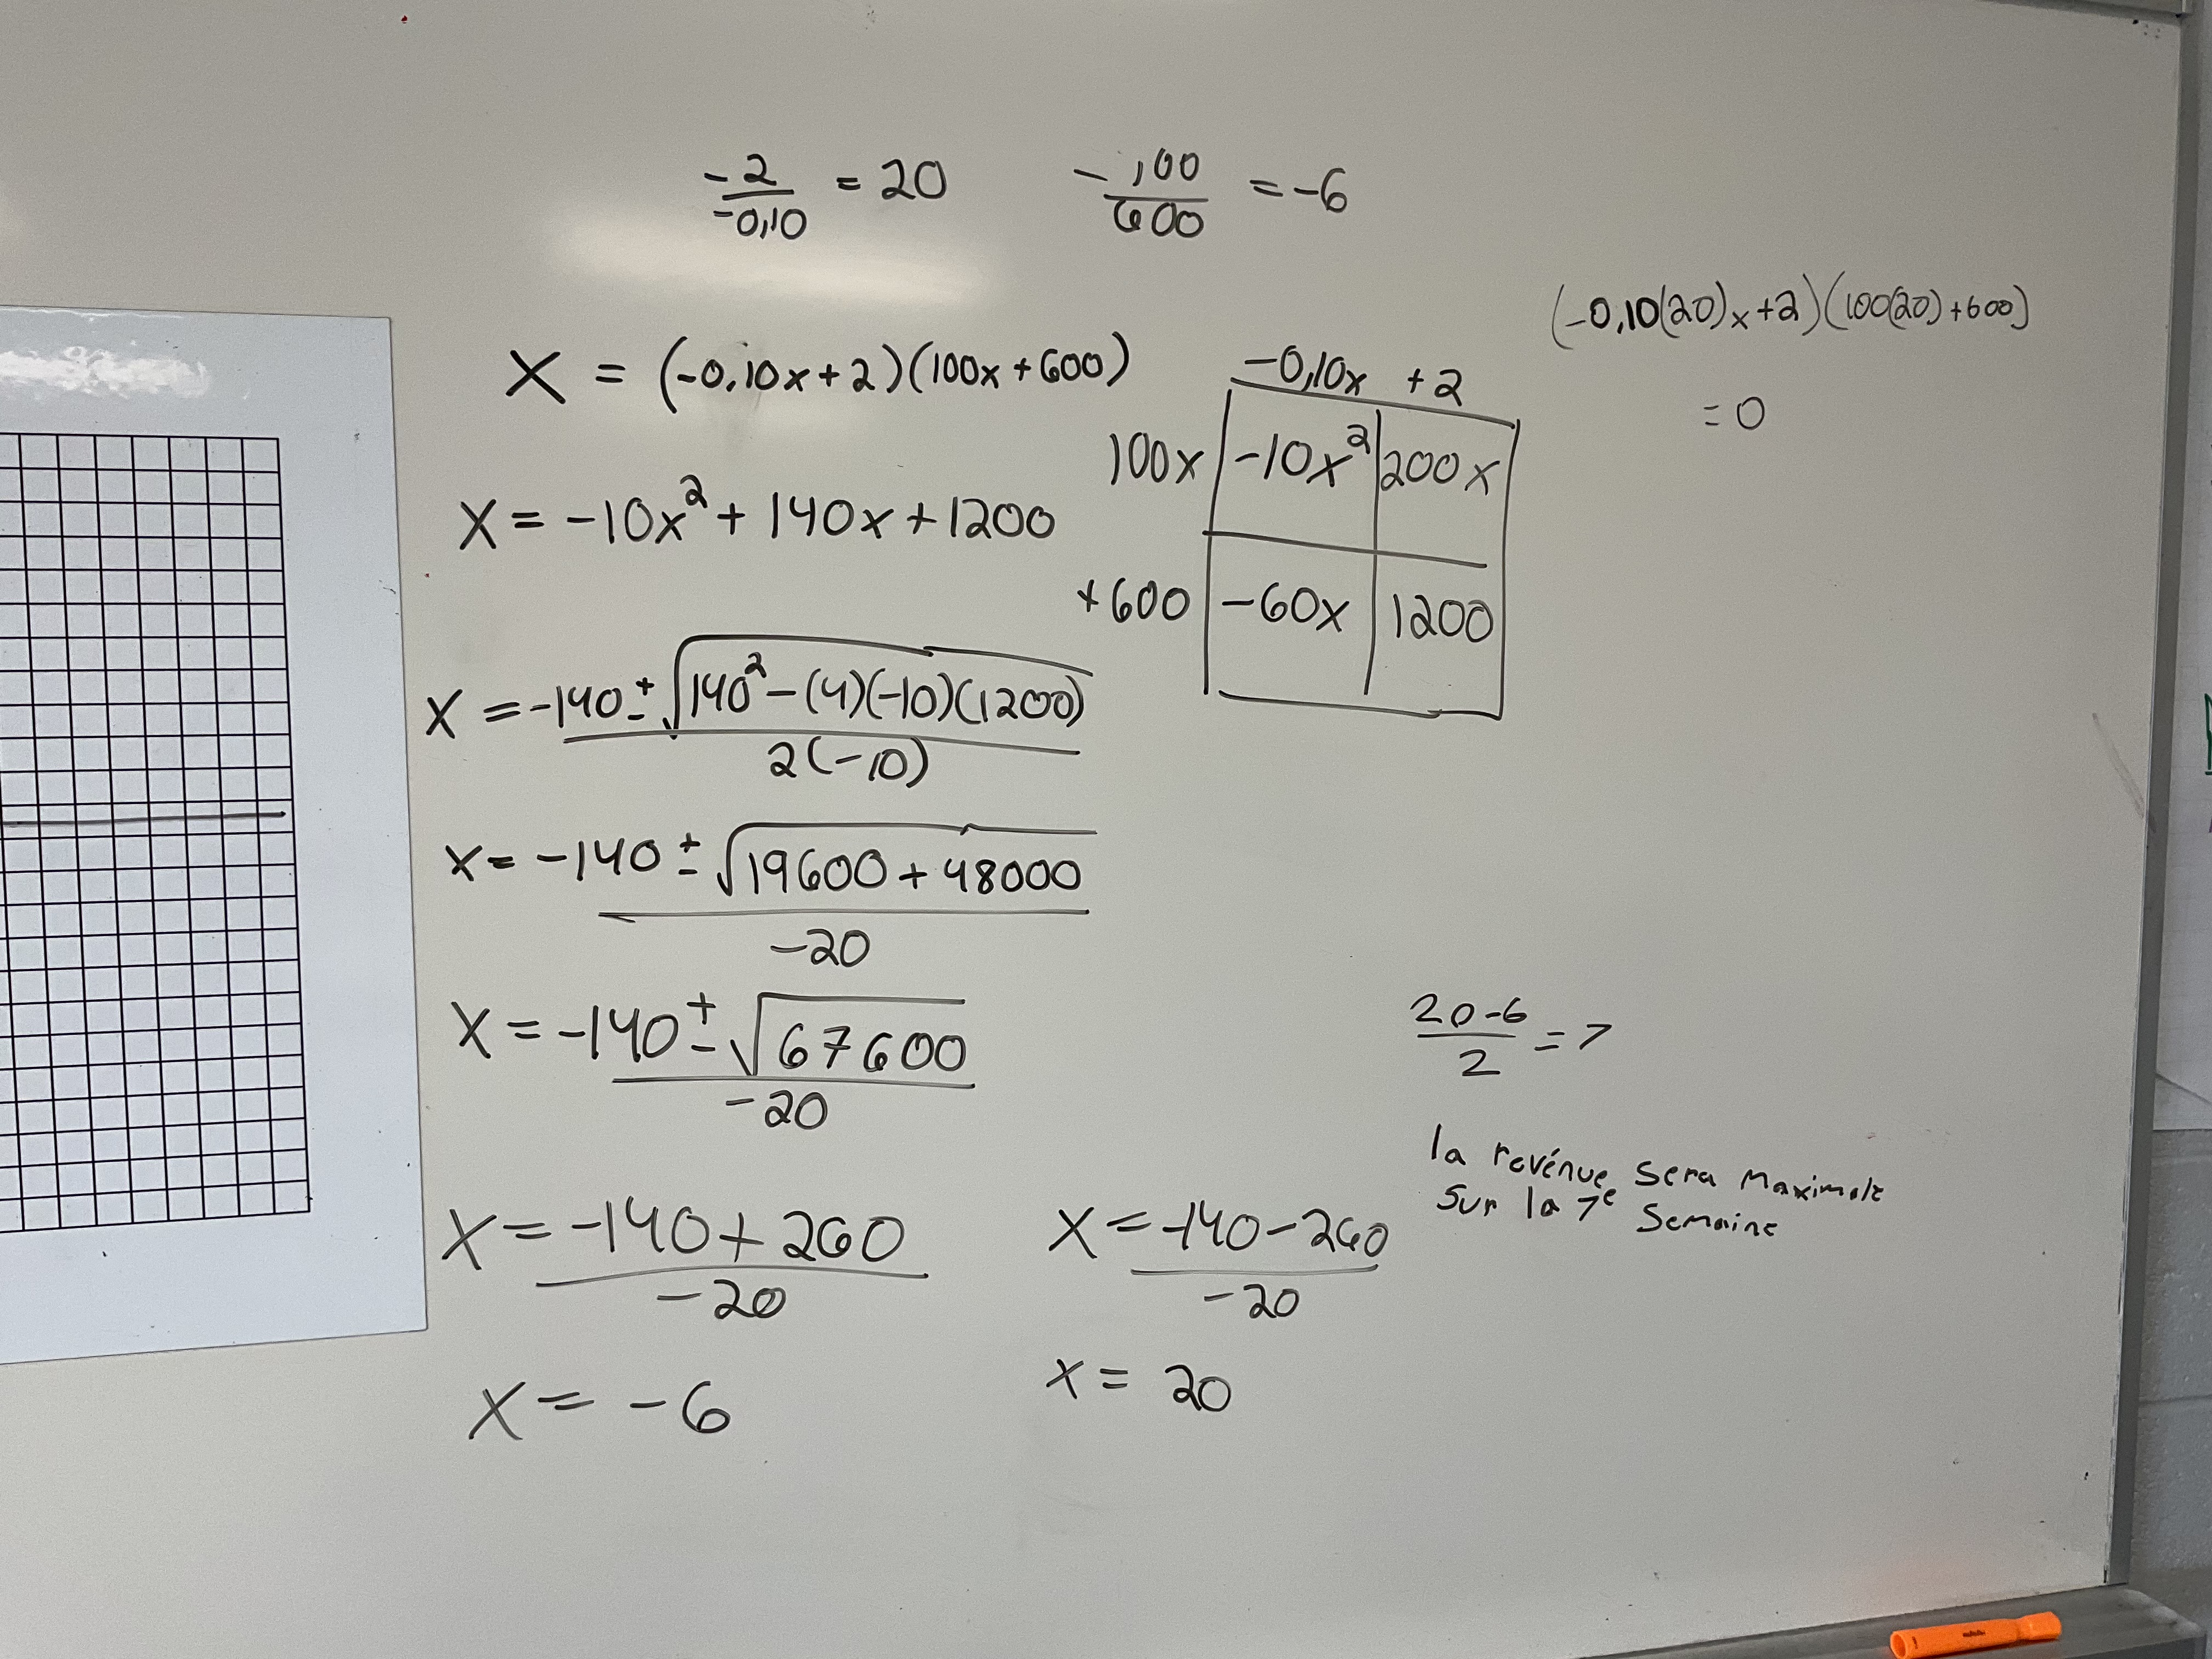 -2/-0,10 = 20
-100/600 = -6
(-0,10(20)x+2)(100(20)+600)
= 0
X = (-0,10x+2)(100x+600)
-0,10x +2
100x -10x² 200x
+600 -60x 1200
X = -10x² + 140x + 1200
X = -140 ± √140² - (4)(-10)(1200)
2(-10)
x = -140 ± √19600 + 48000
-20
X = -140 ± √67600
-20
20-6/2 = 7
la revénue sera maximale
sur la 7e semaine
X = -140 + 260
-20
X = -140 - 260
-20
X = -6
x = 20